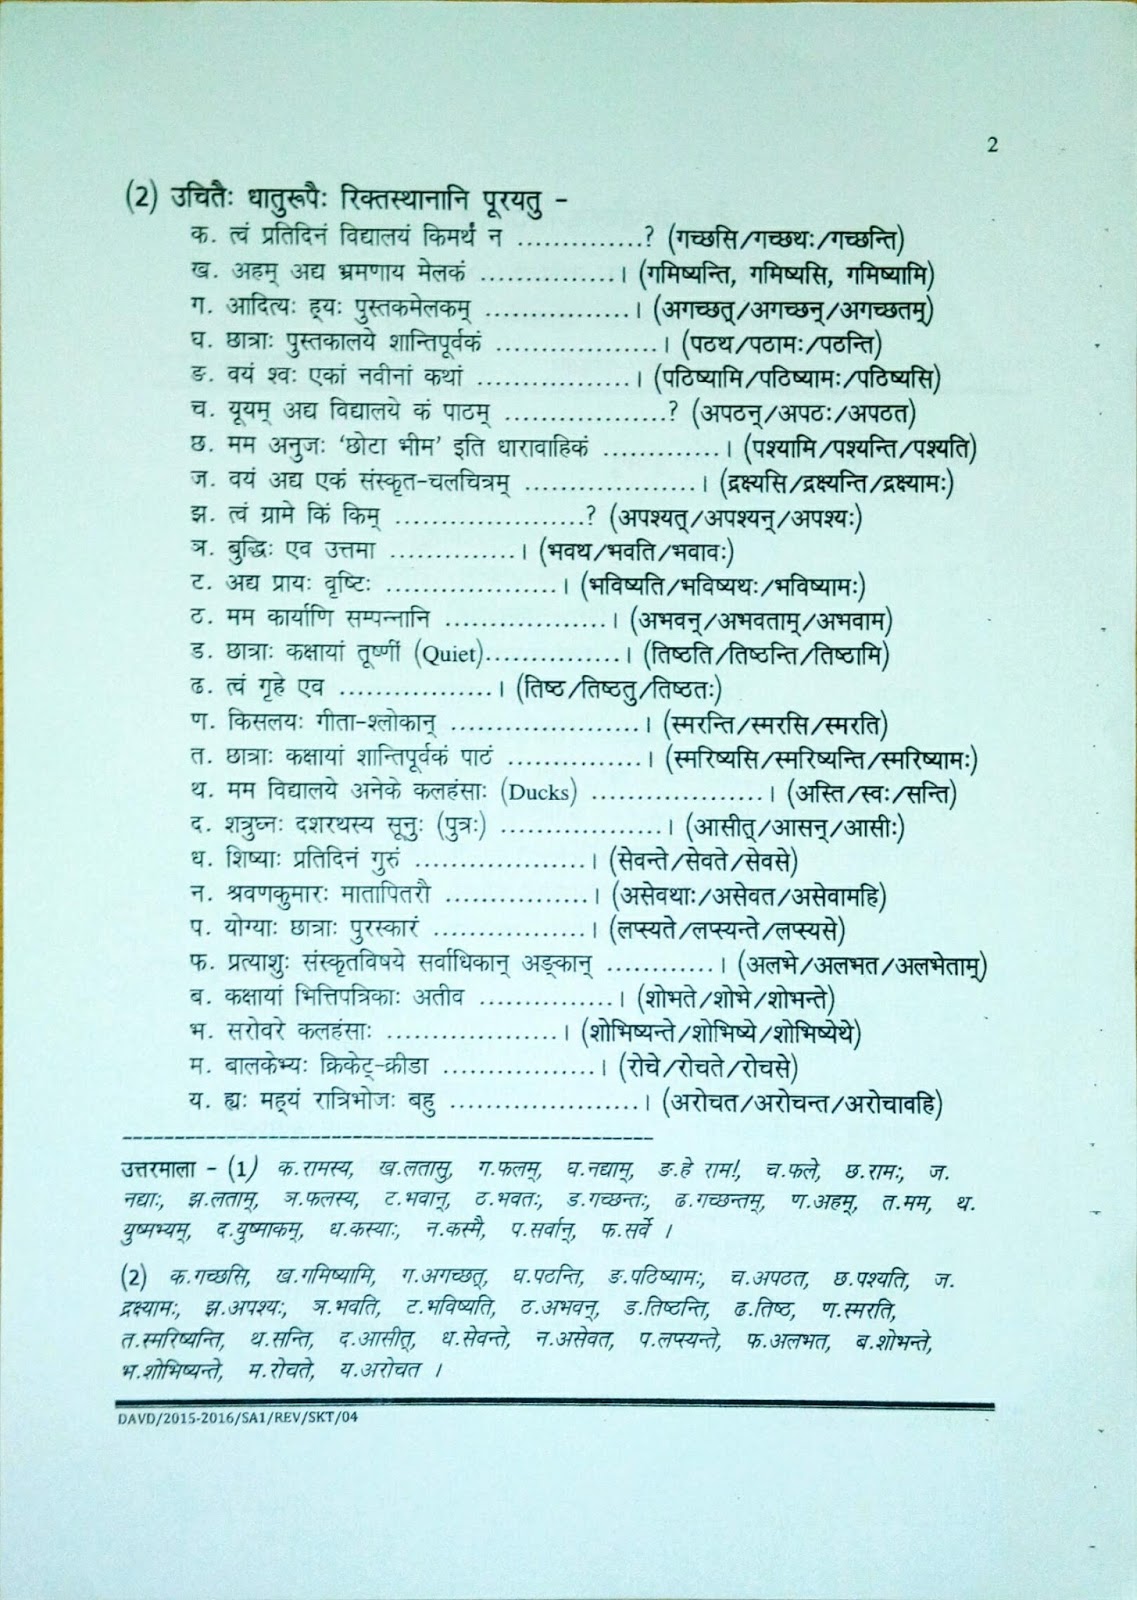 2
(2) उचितैः धातुरूपैः रिक्तस्थानानि पूरयतु -
क. त्वं प्रतिदिनं विद्यालयं किमर्थं न ..............? (गच्छसि/गच्छथः/गच्छन्ति)
ख. अहम् अद्य भ्रमणाय मेलकं ...............। (गमिष्यन्ति, गमिष्यसि, गमिष्यामि)
ग. आदित्यः ह्यः पुस्तकमेलकम् ................। (अगच्छत्/अगच्छन्/अगच्छतम्)
घ. छात्राः पुस्तकालये शान्तिपूर्वकं ..................। (पठथ/पठामः/पठन्ति)
ङ. वयं श्वः एकां नवीनां कथां .................। (पठिष्यामि/पठिष्यामः/पठिष्यसि)
च. यूयम् अद्य विद्यालये कं पाठम् ..................? (अपठन्/अपठः/अपठत)
छ. मम अनुजः ‘छोटा भीम’ इति धारावाहिकं .............। (पश्यामि/पश्यन्ति/पश्यति)
ज. वयं अद्य एकं संस्कृत-चलचित्रम् ...................। (द्रक्ष्यसि/द्रक्ष्यन्ति/द्रक्ष्यामः)
झ. त्वं ग्रामे किं किम् .....................? (अपश्यत्/अपश्यन्/अपश्यः)
ञ. बुद्धिः एव उत्तमा ..............। (भवथ/भवति/भवावः)
ट. अद्य प्रायः वृष्टिः ...................। (भविष्यति/भविष्यथः/भविष्यामः)
ठ. मम कार्याणि सम्पन्नानि ..................। (अभवन्/अभवताम्/अभवाम)
ड. छात्राः कक्षायां तूष्णीं (Quiet)...............। (तिष्ठति/तिष्ठन्ति/तिष्ठामि)
ढ. त्वं गृहे एव .................। (तिष्ठ/तिष्ठतु/तिष्ठतः)
ण. किसलयः गीता-श्लोकान् .....................। (स्मरन्ति/स्मरसि/स्मरति)
त. छात्राः कक्षायां शान्तिपूर्वकं पाठं ...............। (स्मरिष्यसि/स्मरिष्यन्ति/स्मरिष्यामः)
थ. मम विद्यालये अनेके कलहंसाः (Ducks) ...................। (अस्ति/स्वः/सन्ति)
द. शत्रुघ्नः दशरथस्य सूनुः (पुत्रः) ..................। (आसीत्/आसन्/आसीः)
ध. शिष्याः प्रतिदिनं गुरुं ...................। (सेवन्ते/सेवते/सेवसे)
न. श्रवणकुमारः मातापितरौ ................। (असेवथाः/असेवत/असेवामहि)
प. योग्याः छात्राः पुरस्कारं .................। (लप्स्यते/लप्स्यन्ते/लप्स्यसे)
फ. प्रत्याशुः संस्कृतविषये सर्वाधिकान् अङ्कान् ............। (अलभे/अलभत/अलभेताम्)
ब. कक्षायां भित्तिपत्रिकाः अतीव ...............। (शोभते/शोभे/शोभन्ते)
भ. सरोवरे कलहंसाः ....................। (शोभिष्यन्ते/शोभिष्ये/शोभिष्येथे)
म. बालकेभ्यः क्रिकेट्-क्रीडा .................। (रोचे/रोचते/रोचसे)
य. ह्यः मह्यं रात्रिभोजः बहु .....................। (अरोचत/अरोचन्त/अरोचावहि)
उत्तरमाला - (1) क.रामस्य, ख.लतासु, ग.फलम्, घ.नद्याम्, ङ.हे राम!, च.फले, छ.रामः, ज.
नद्याः, झ.लताम्, ञ.फलस्य, ट.भवान्, ठ.भवतः, ड.गच्छन्तः, ढ.गच्छन्तम्, ण.अहम्, त.मम, थ.
युष्मभ्यम्, द.युष्माकम्, ध.कस्याः, न.कस्मै, प.सर्वान्, फ.सर्वे ।
(2) क.गच्छसि, ख.गमिष्यामि, ग.अगच्छत्, घ.पठन्ति, ङ.पठिष्यामः, च.अपठत, छ.पश्यति, ज.
द्रक्ष्यामः, झ.अपश्यः, ञ.भवति, ट.भविष्यति, ठ.अभवन्, ड.तिष्ठन्ति, ढ.तिष्ठ, ण.स्मरति,
त.स्मरिष्यन्ति, थ.सन्ति, द.आसीत्, ध.सेवन्ते, न.असेवत, प.लप्स्यन्ते, फ.अलभत, ब.शोभन्ते,
भ.शोभिष्यन्ते, म.रोचते, य.अरोचत ।
DAVD/2015-2016/SA1/REV/SKT/04